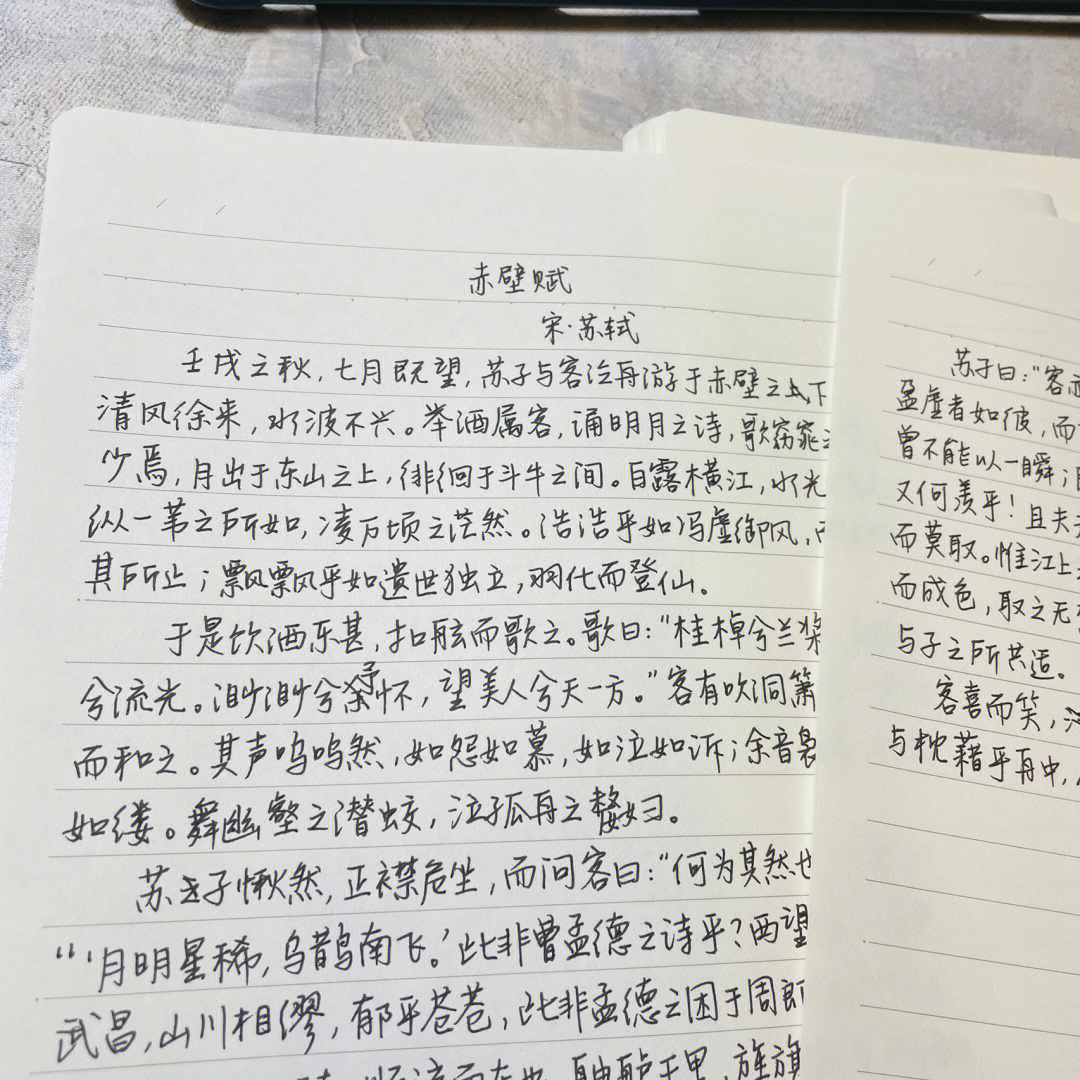 赤壁赋
宋·苏轼
壬戌之秋，七月既望，苏子与客泛舟游于赤壁之下
清风徐来，水波不兴。举酒属客，诵明月之诗，歌窈窕
少焉，月出于东山之上，徘徊于斗牛之间。白露横江，水光
纵一苇之所如，凌万顷之茫然。浩浩乎如冯虚御风，而
其所止；飘飘乎如遗世独立，羽化而登仙。
于是饮酒乐甚，扣舷而歌之。歌曰：“桂棹兮兰桨
兮流光。渺渺兮予怀，望美人兮天一方。”客有吹洞箫
而和之。其声呜呜然，如怨如慕，如泣如诉；余音袅
如缕。舞幽壑之潜蛟，泣孤舟之嫠妇。
苏子愀然，正襟危坐，而问客曰：“何为其然也
“‘月明星稀，乌鹊南飞。’此非曹孟德之诗乎？西望
武昌，山川相缪，郁乎苍苍，此非孟德之困于周郎
顺流而东也，舳舻千里，旌旗
苏子曰：“客亦
盈虚者如彼，而
曾不能以一瞬；
又何羡乎！且夫天
而莫取。惟江上
而成色，取之无
与子之所共适。
客喜而笑，洗
与枕藉乎舟中，